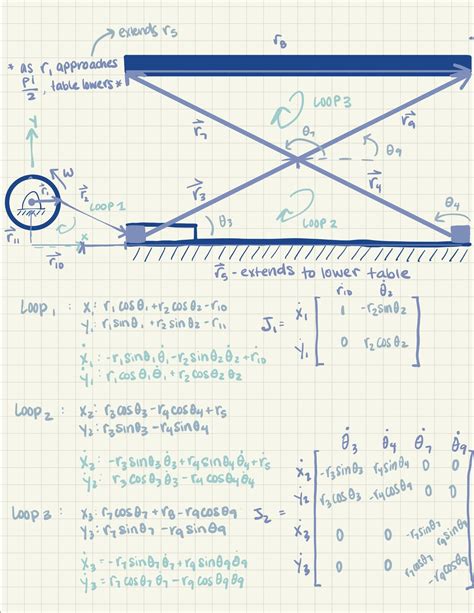 extends r₅
r₈
* as r₁ approaches
pi/2, table lowers *
LOOP 3
r₇
θ₇
r₉
θ₉
y
ω
r₁
r₂
LOOP 1
r₃
r₄
θ₃
LOOP 2
θ₄
r₁₁
x
r₁₀
r₅ - extends to lower table
ṙ₁₀ θ̇₂
Loop₁ : x₁: r₁cosθ₁ + r₂cosθ₂ - r₁₀
y₁: r₁sinθ₁ + r₂sinθ₂ - r₁₁
J₁ =
ẋ₁ 1 -r₂sinθ₂
ẏ₁ 0 r₂cosθ₂
ẋ₁: -r₁sinθ₁θ̇₁ - r₂sinθ₂θ̇₂ + ṙ₁₀
ẏ₁: r₁cosθ₁θ̇₁ + r₂cosθ₂θ̇₂
Loop₂ : x₂: r₃cosθ₃ - r₄cosθ₄ + r₅
y₂: r₃sinθ₃ - r₄sinθ₄
ẋ₂: -r₃sinθ₃θ̇₃ + r₄sinθ₄θ̇₄ + ṙ₅
ẏ₂: r₃cosθ₃θ̇₃ - r₄cosθ₄θ̇₄
Loop 3 : x₃: r₇cosθ₇ + r₈ - r₉cosθ₉
y₃: r₇sinθ₇ - r₉sinθ₉
ẋ₃ = -r₇sinθ₇θ̇₇ + r₉sinθ₉θ̇₉
ẏ₃ = r₇cosθ₇θ̇₇ - r₉cosθ₉θ̇₉
θ̇₃ θ̇₄ θ̇₇ θ̇₉
J₂ =
ẋ₂ -r₃sinθ₃ r₄sinθ₄ 0 0
ẏ₂ r₃cosθ₃ -r₄cosθ₄ 0 0
ẋ₃ 0 0 -r₇sinθ₇ r₉sinθ₉
ẏ₃ 0 0 r₇cosθ₇ -r₉cosθ₉